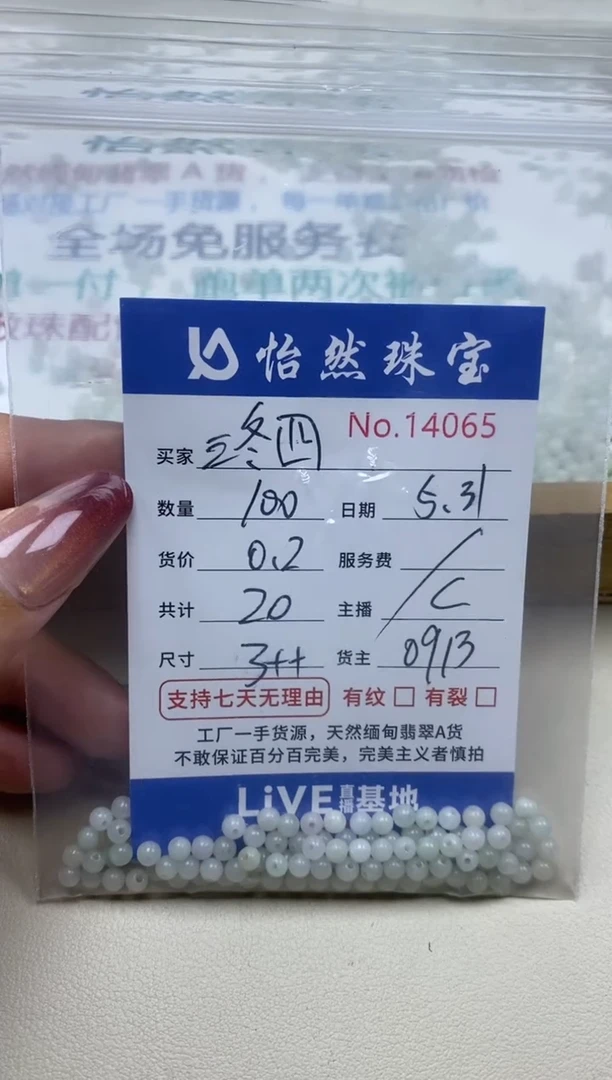 全场免服务费
怡然珠宝
No.14065
买家 三冬四
数量 100 日期 5.31
货价 0.2 服务费 /
共计 20 主播 C
尺寸 3++ 货主 0913
支持七天无理由 有纹 □ 有裂 □
工厂一手货源，天然缅甸翡翠A货
不敢保证百分百完美，完美主义者慎拍
LiVE直播基地